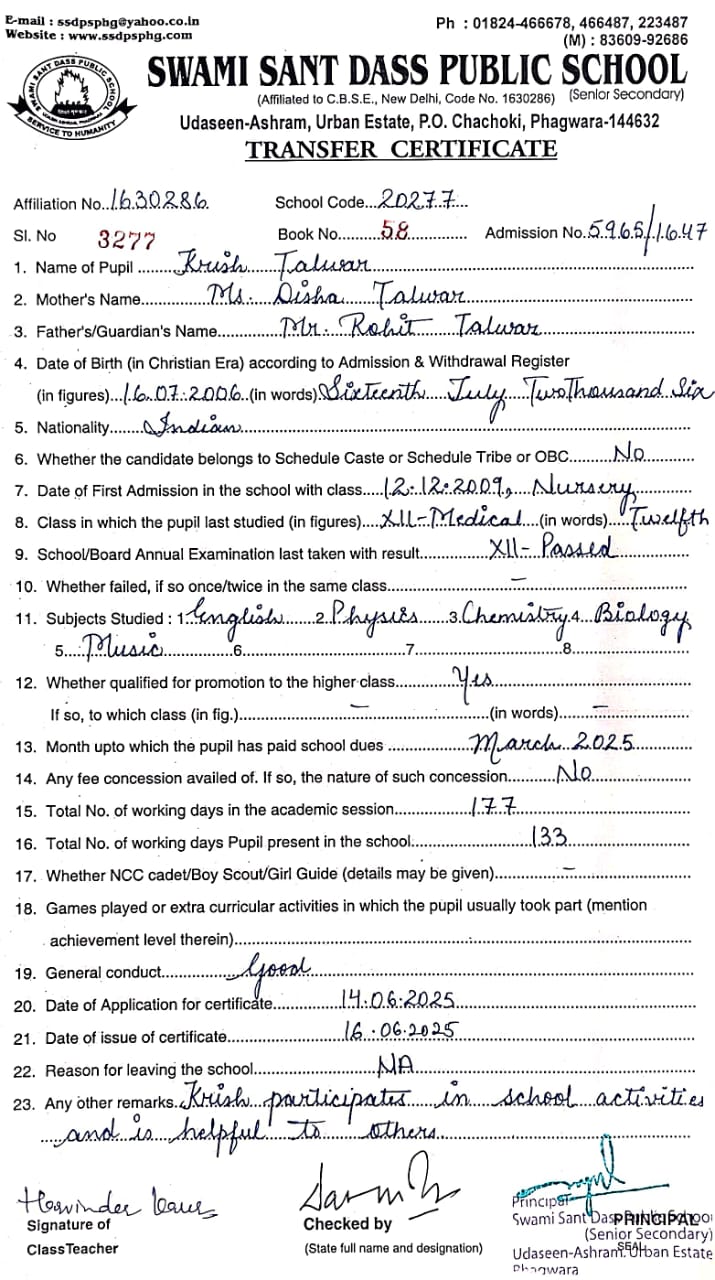 E-mail : ssdpsphg@yahoo.co.in
Website : www.ssdpsphg.com
Ph : 01824-466678, 466487, 223487
(M) : 83609-92686
SWAMI SANT DASS PUBLIC SCHOOL
SERVICE TO HUMANITY
SWAMI SANT DASS PUBLIC SCHOOL
(Affiliated to C.B.S.E., New Delhi, Code No. 1630286) (Senior Secondary)
Udaseen-Ashram, Urban Estate, P.O. Chachoki, Phagwara-144632
TRANSFER CERTIFICATE
Affiliation No..1630286 School Code...20277...
Sl. No 3277 Book No.........58............. Admission No.5965/1647
1. Name of Pupil ........Krish Talwar
2. Mother's Name............Ms. Disha Talwar
3. Father's/Guardian's Name............Mr. Rohit Talwar
4. Date of Birth (in Christian Era) according to Admission & Withdrawal Register
(in figures)...16.07.2006..(in words).Sixteenth July Two Thousand Six
5. Nationality.......Indian
6. Whether the candidate belongs to Schedule Caste or Schedule Tribe or OBC.........No
7. Date of First Admission in the school with class....12.12.2009, Nursery
8. Class in which the pupil last studied (in figures)...XII-Medical...(in words)....Twelfth
9. School/Board Annual Examination last taken with result............XII- Passed
10. Whether failed, if so once/twice in the same class............–
11. Subjects Studied : 1.English......2.Physics......3.Chemistry.4...Biology
5....Music.............6.............7.............8.............
12. Whether qualified for promotion to the higher class............Yes
If so, to which class (in fig.)............–............(in words)......–
13. Month upto which the pupil has paid school dues ............March 2025
14. Any fee concession availed of. If so, the nature of such concession.........No
15. Total No. of working days in the academic session............177
16. Total No. of working days Pupil present in the school............133
17. Whether NCC cadet/Boy Scout/Girl Guide (details may be given)............–
18. Games played or extra curricular activities in which the pupil usually took part (mention
achievement level therein)............
19. General conduct............Good
20. Date of Application for certificate............14.06.2025
21. Date of issue of certificate............16.06.2025
22. Reason for leaving the school............NA
23. Any other remarks..Krish participates in school activities
and is helpful to others
Harvinder Kaur
Signature of
ClassTeacher
Checked by
(State full name and designation)
Principal
Swami Sant Dass Public School
PRINCIPAL
(Senior Secondary)
SEAL
Udaseen-Ashram. Urban Estate
Phagwara